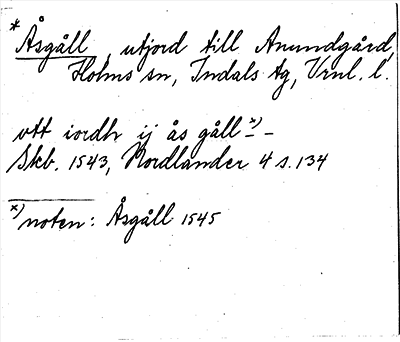 *Åsgåll, utjord till Anundgård,
Holms sn, Indals tg, Vrnl. l.
vtt iordh ij ås gåll x) –
Skb. 1543, Nordlander 4 s. 134
x) noten: Åsgåll 1545